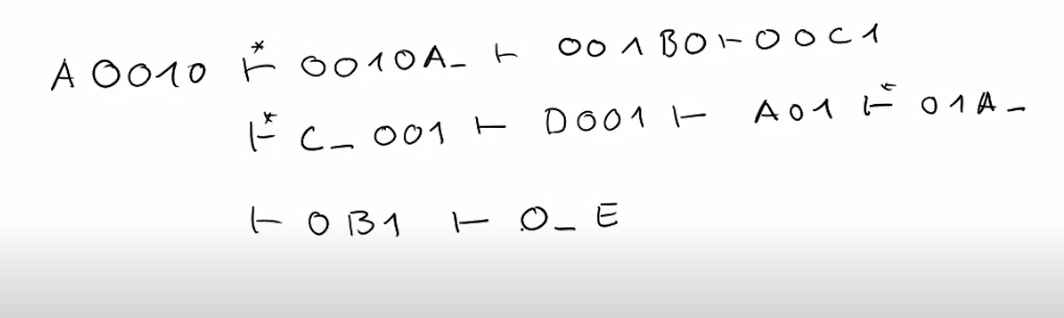 A 0010 ⊢* 0010A_ ⊢ 001B0 ⊢ 00C1
⊢* C_001 ⊢ D001 ⊢ A01 ⊢* 01A_
⊢ 0B1 ⊢ 0_E